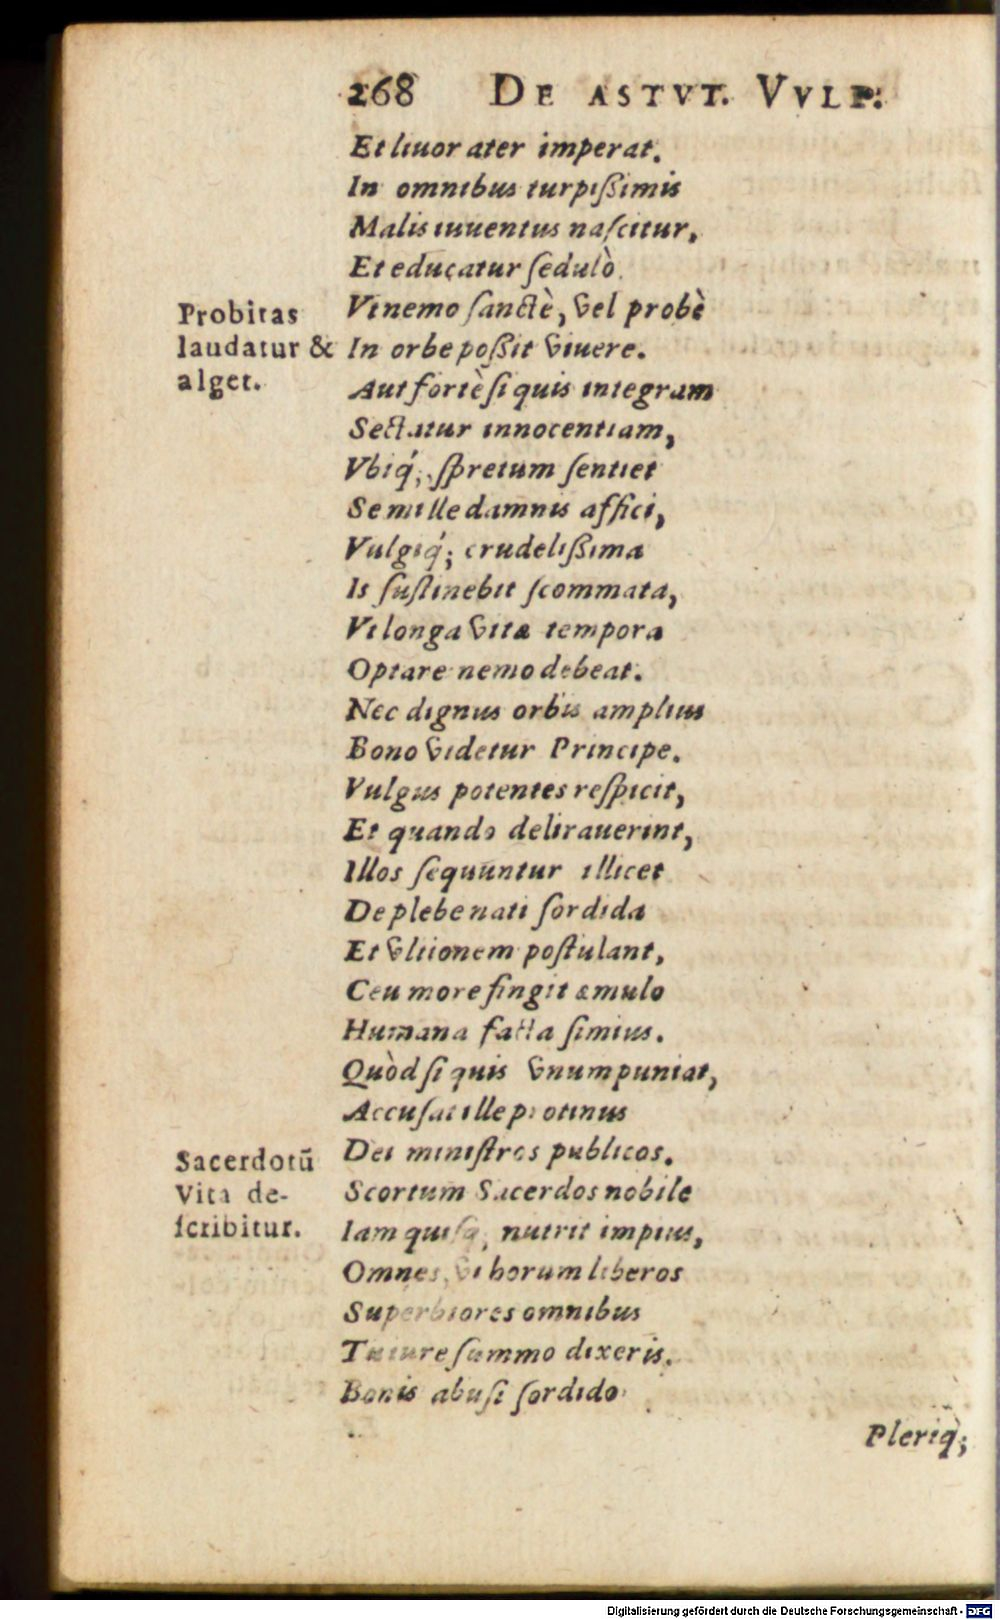 268 DE ASTVT. VVLP:
Et liuor ater imperat.
In omnibus turpißimis
Malis iuuentus naſcitur,
Et educatur ſedulò
Probitas
laudatur &
alget.
Vt nemo ſanctè, vel probè
In orbe poßit viuere.
Aut fortè ſi quis integram
Sectatur innocentiam,
Vbiq́; ſpretum ſentiet
Se mille damnis affici,
Vulgiq́; crudelißima
Is ſuſtinebit ſcommata,
Vt longa vitæ tempora
Optare nemo debeat.
Nec dignus orbis amplius
Bono videtur Principe.
Vulgus potentes reſpicit,
Et quando delirauerint,
Illos ſequuntur illicet
De plebe nati ſordida
Et vltionem poſtulant,
Ceu more fingit æmulo
Humana facta ſimius.
Quòd ſi quis vnum puniat,
Accuſat ille protinus
Dei miniſtros publicos.
Sacerdotū
Vita de-
ſcribitur.
Scortum Sacerdos nobile
Iam quiſq; nutrit impius,
Omnes, vt horum liberos
Superbiores omnibus
Tu iure ſummo dixeris.
Bonis abuſi ſordido
Pleriq́;
Digitalisierung gefördert durch die Deutsche Forschungsgemeinschaft - DFG